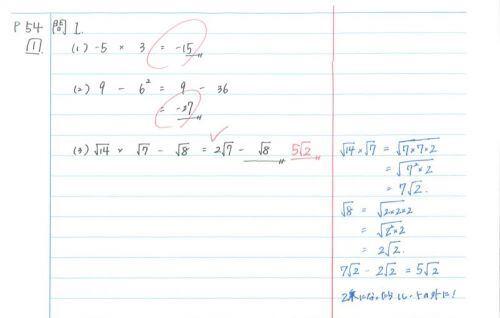 P54 問1.
1
(1) -5 × 3 = -15
(2) 9 - 6² = 9 - 36
= -27
(3) √14 × √7 - √8 = 2√7 - √8 5√2
√14 × √7 = √7×7×2
= √7²×2
= 7√2.
√8 = √2×2×2
= √2²×2
= 2√2.
7√2 - 2√2 = 5√2
2乗になったらルートの外に!